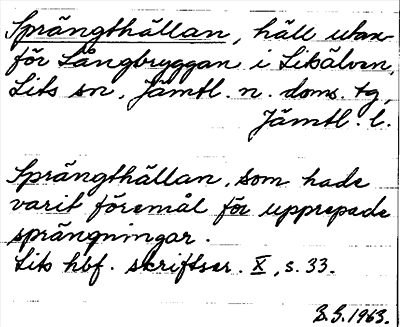 Sprängthällan, häll utan-
för Långbryggan i Litälven,
Lits sn, Jämtl. n. doms. tg,
Jämtl. l.
Sprängthällan, som hade
varit föremål för upprepade
sprängningar.
Lits hbf. skriftser. X, s. 33.
B.G. 1963.